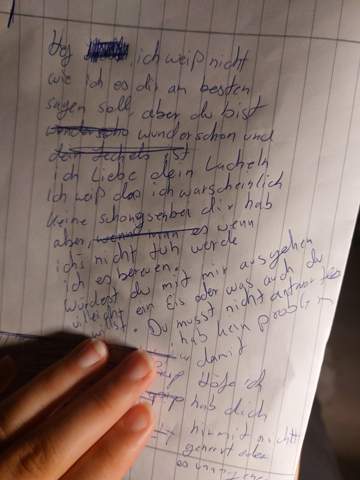 Hey ich weiß nicht
wie ich es dir am besten
sagen soll, aber du bist
wunderschon und
ist
ich Liebe dein Lächeln
Ich weiß das ich warscheinlich
keine bei dir hab
aber, wenn man es wenn
ich's nicht tuh werde
ich es bereuen.
würdest du mit mir ausgehen
villeicht ein Eis oder was auch du
willst. Du musst nicht antworten
hab kein problem
damit
ich
hab dich
hiermit nicht
genervt oder